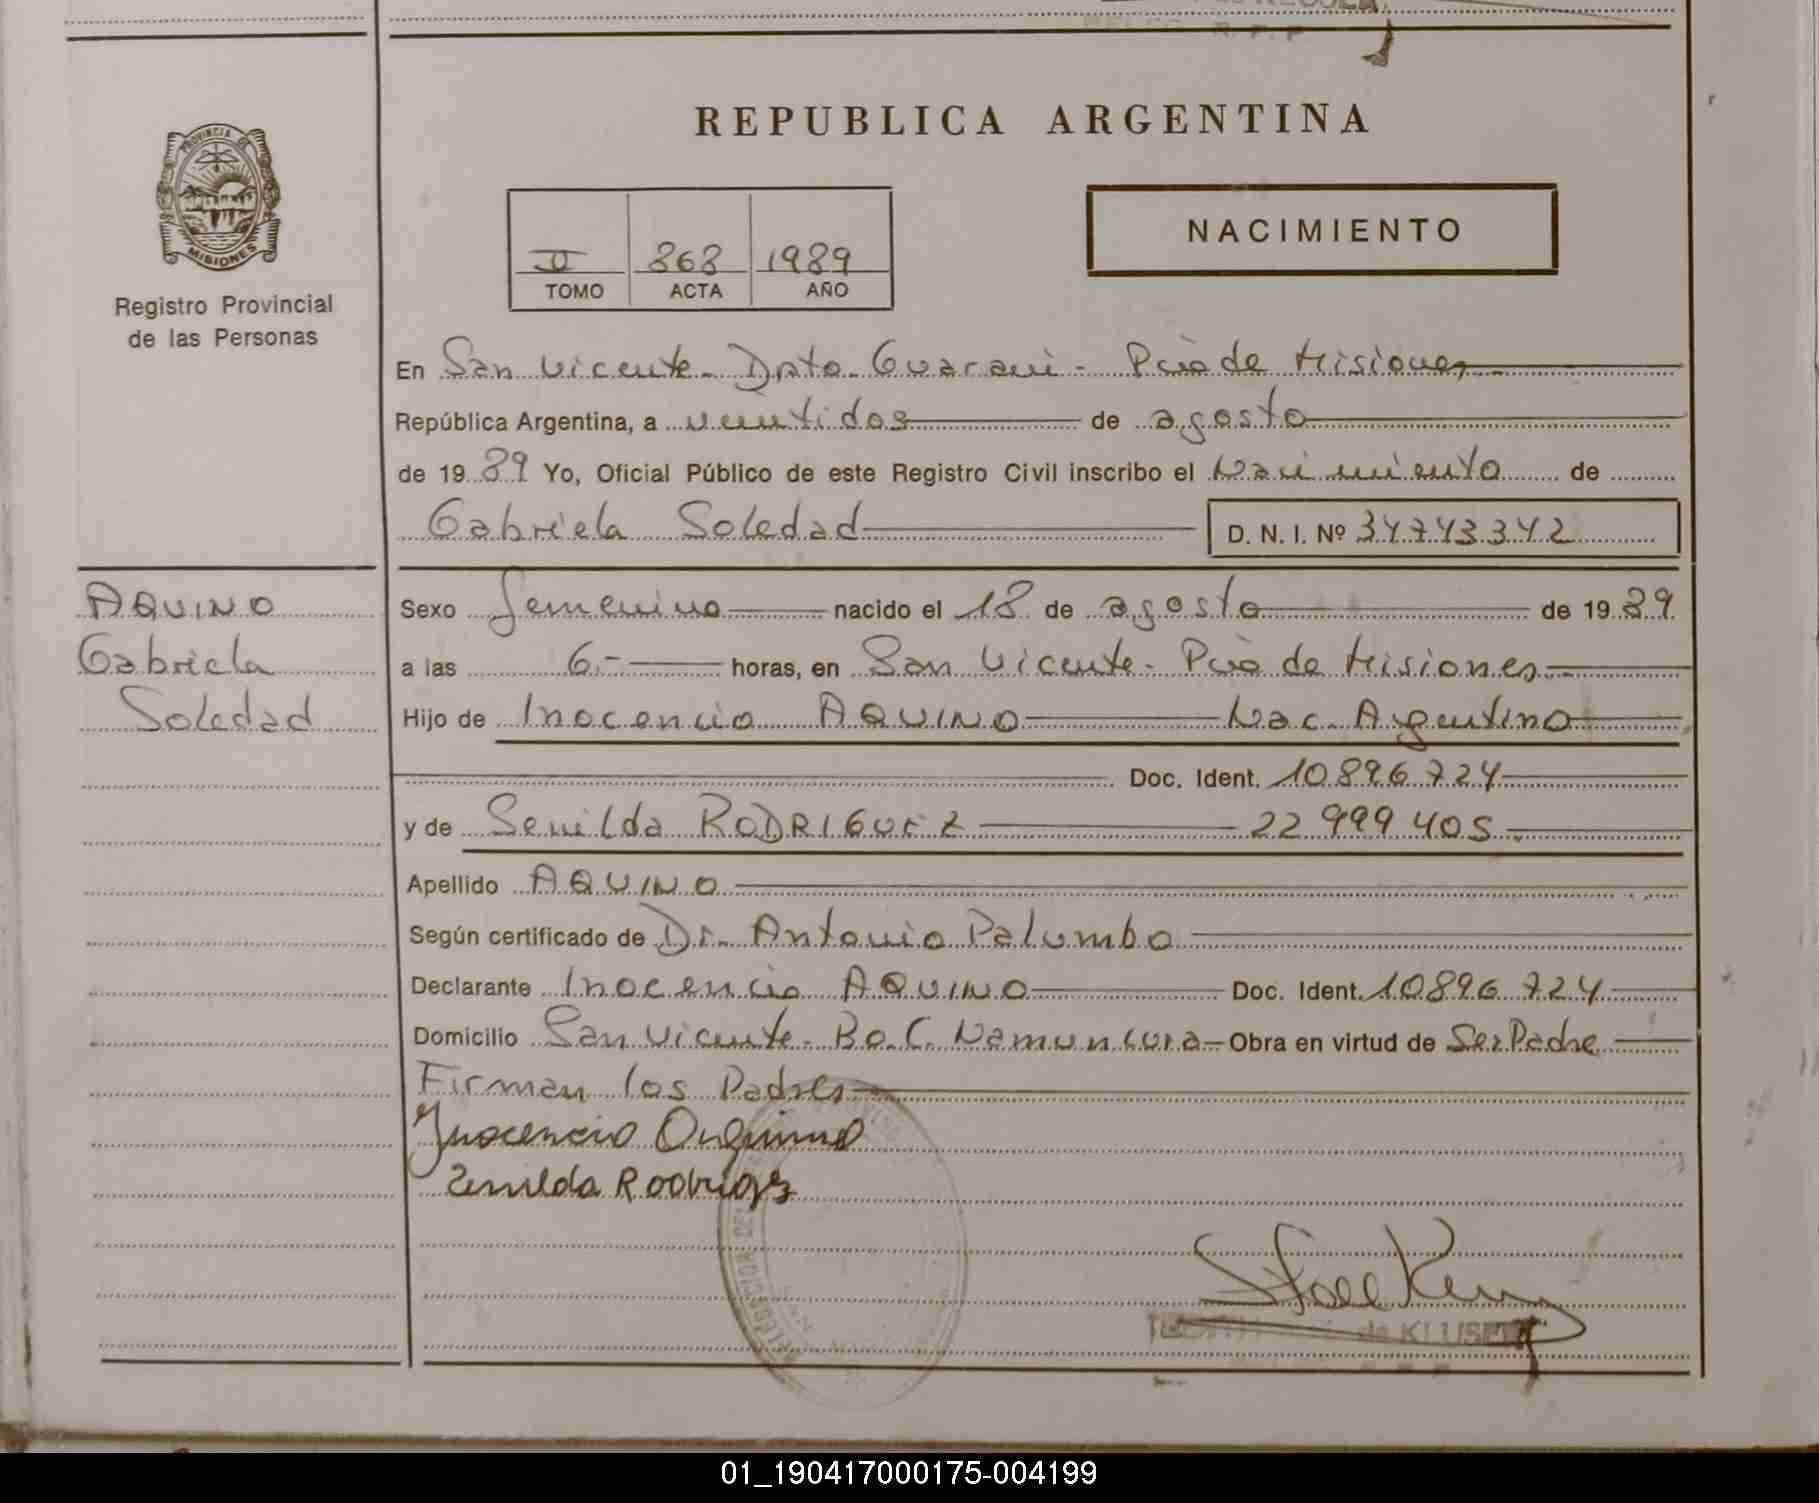 REPUBLICA ARGENTINA
PROVINCIA DE
MISIONES
Registro Provincial
de las Personas
II 868 1989
TOMO ACTA AÑO
NACIMIENTO
En San Vicente - Dpto. Guarani - Pcia de Misiones
República Argentina, a veintidos de agosto
de 1989 Yo, Oficial Público de este Registro Civil inscribo el Nacimiento de
Gabriela Soledad D. N. I. Nº 34743342
AQUINO
Gabriela
Soledad
Sexo femenino nacido el 18 de agosto de 1989
a las 6.- horas, en San Vicente - Pcia de Misiones
Hijo de Inocencio AQUINO Nac. Argentino
Doc. Ident. 10.896.724
y de Senilda RODRIGUEZ 22.999.405
Apellido AQUINO
Según certificado de Dr. Antonio Palumbo
Declarante Inocencio AQUINO Doc. Ident. 10.896.724
Domicilio San Vicente - Bo. C. Namuncura - Obra en virtud de Ser Padre
Firman los Padres
Inocencio
Zenilda
de KLUSE
01_190417000175-004199